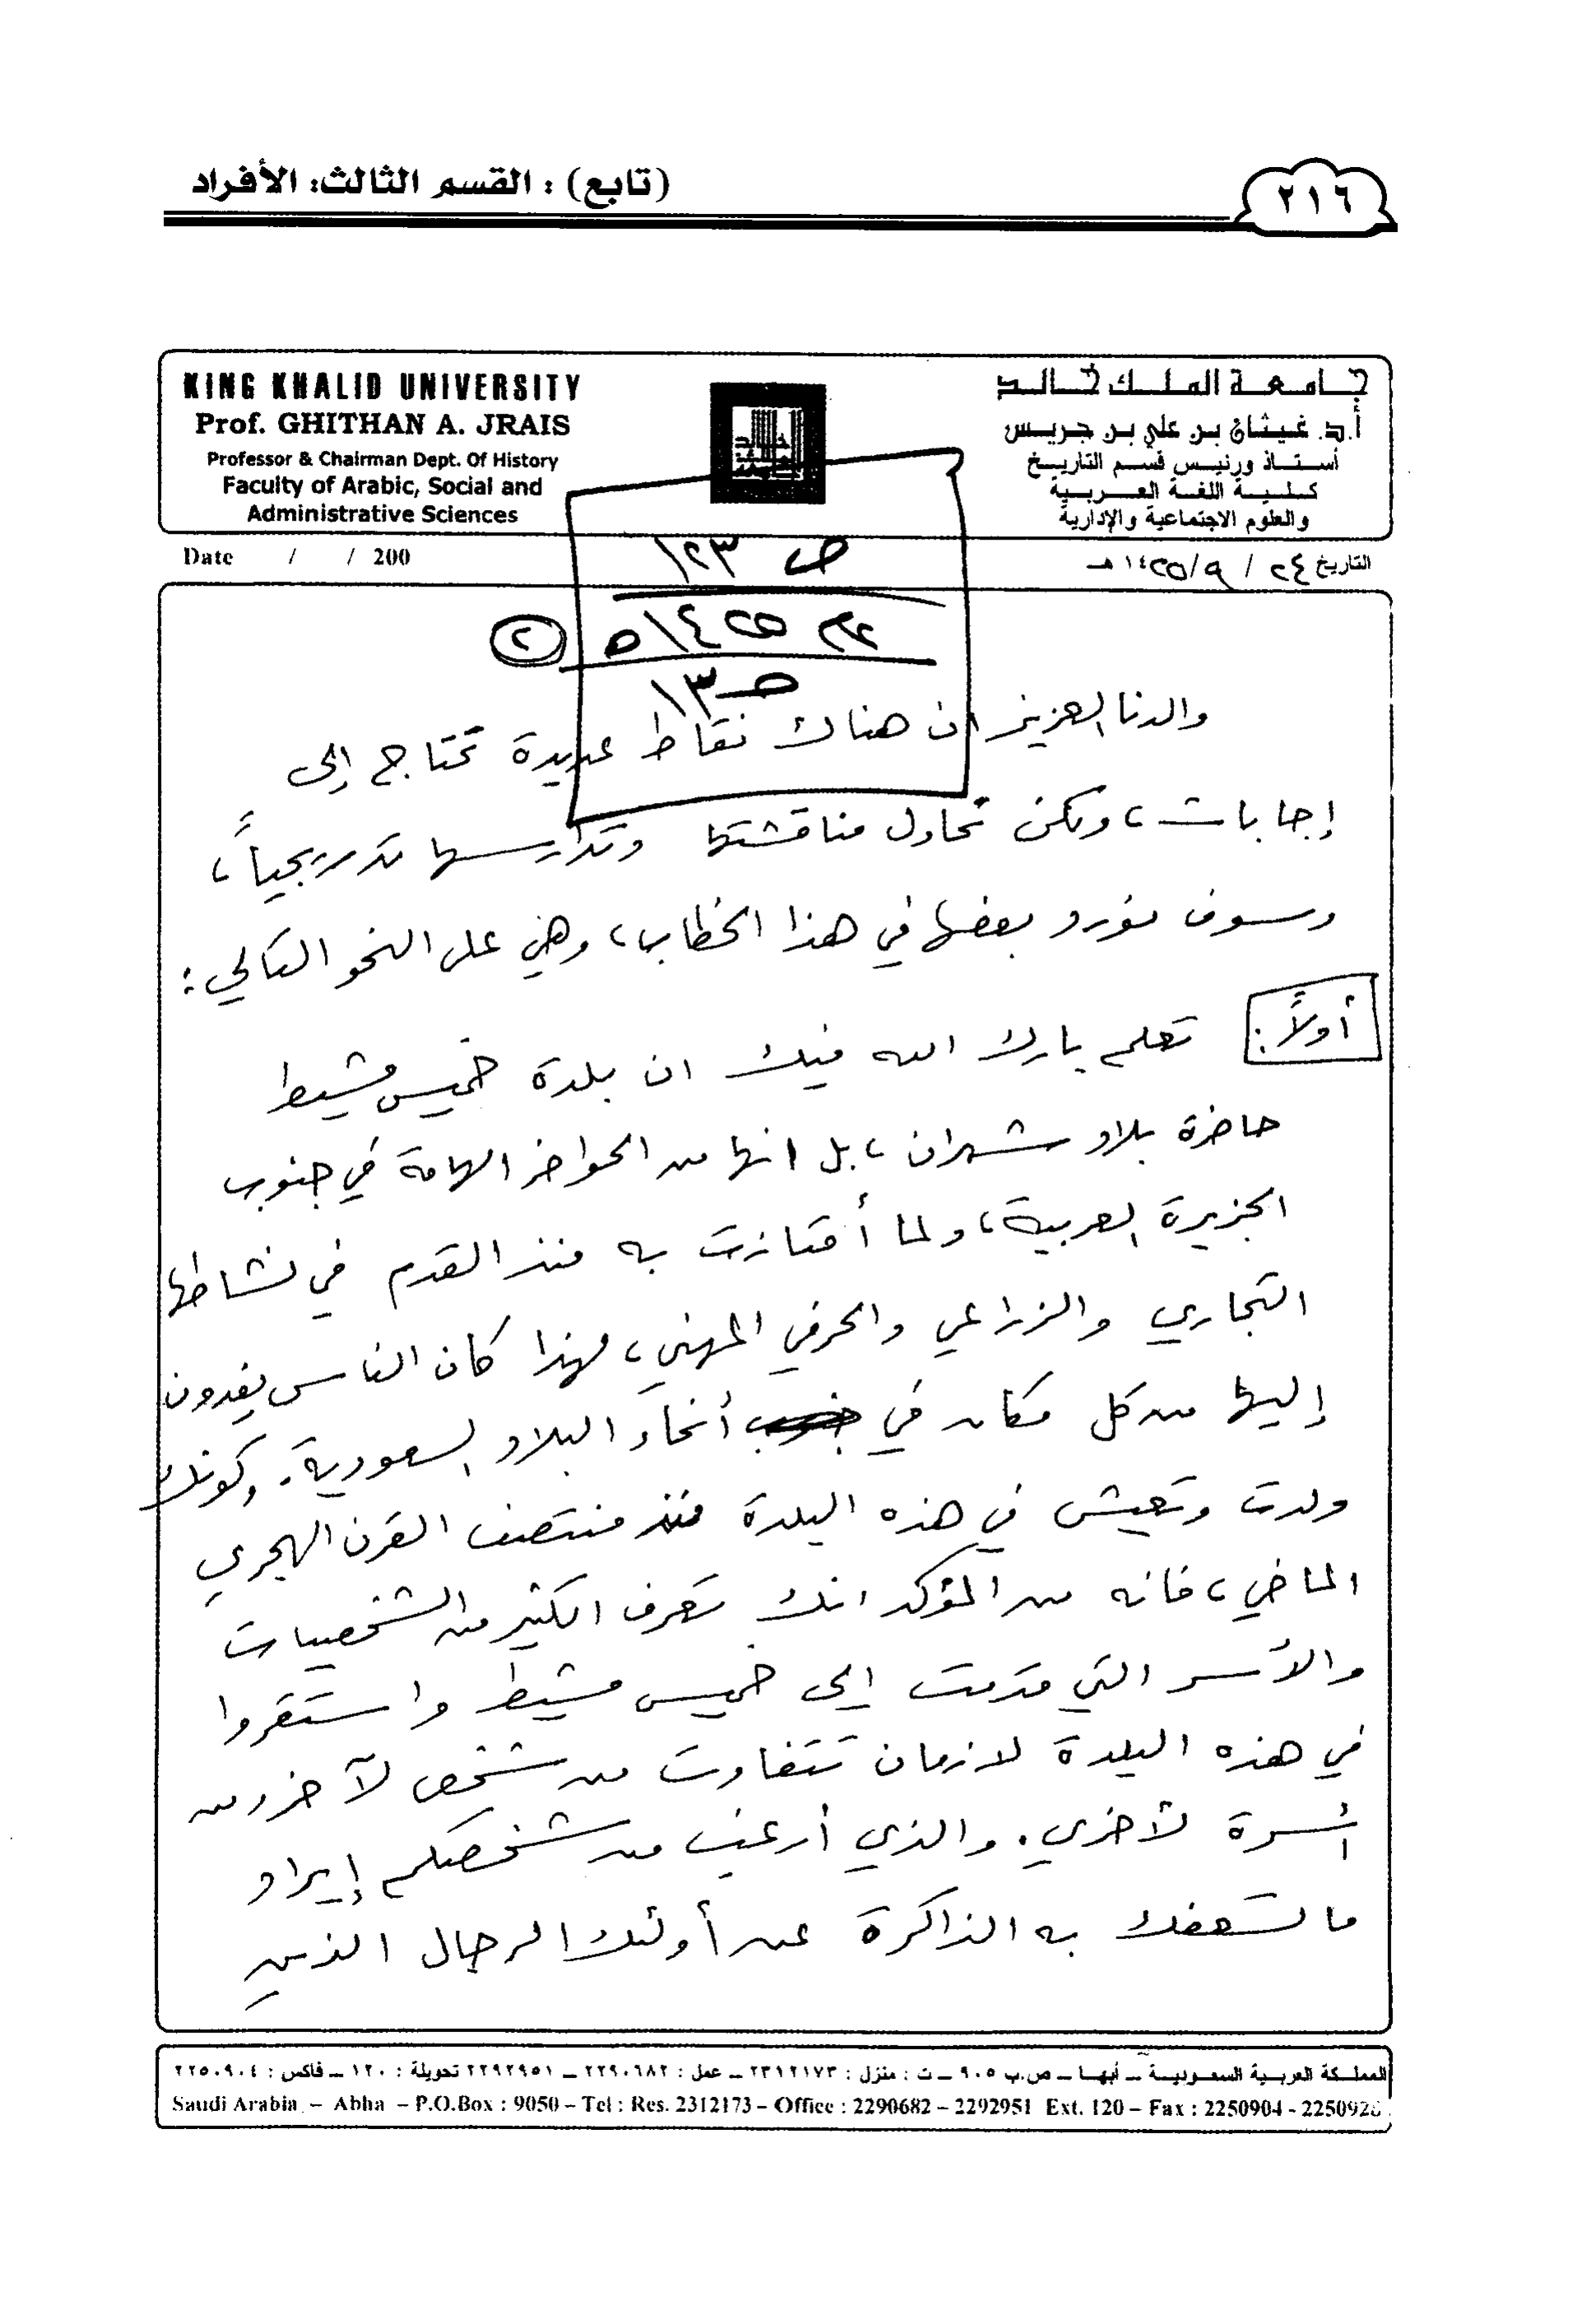 (تابع) : القسم الثالث: الأفراد
٢١٦
KING KHALID UNIVERSITY
Prof. GHITHAN A. JRAIS
Professor & Chairman Dept. Of History
Faculty of Arabic, Social and
Administrative Sciences
جامعة الملك خالد
أ.د. غيثان بن علي بن جريس
أستاذ ورئيس قسم التاريخ
كلية اللغة العربية
والعلوم الاجتماعية والإدارية
Date / / 200
التاريخ ٢٤ / ٩/ ١٤٢٥هـ
ص ١٢٣
١٤٢٥هـ
٢
ص ١٣
والدنا العزيز ان هناك نقاط عديدة تحتاج إلى
إجابات، ولكن نحاول مناقشتها وتدارسها تدريجياً،
وسوف نورد بعضها في هذا الخطاب، وهي على النحو التالي:
أولاً: تعلم بارك الله فيك ان بلدة خميس مشيط
حاضرة بلاد شهران، بل انها من الحواضر الهامة في جنوب
الجزيرة العربية، ولما أمتازت به منذ القدم في نشاطها
التجاري والزراعي والحرفي المهني، لهذا كان الناس يفدون
إليها من كل مكان في أنحاء البلاد السعودية. وكونك
ولدت وتعيش في هذه البلدة منذ منتصف القرن الهجري
الماضي، فانه من المؤكد انك تعرف الكثير من الشخصيات
والأسر التي قدمت إلى خميس مشيط واستقروا
في هذه البلدة لازمان تتفاوت من شخص لآخر ومن
أسرة لأخرى. والذي أرغب من شخصكم إيراد
ما تسعفك به الذاكرة عن أولئك الرجال الذين
المملكة العربية السعودية – أبها – ص.ب ٩٠٥ – ت : منزل : ٢٣١٢١٧٣ – عمل : ٢٢٩٠٦٨٢ – ٢٢٩٢٩٥١ تحويلة : ١٢٠ – فاكس : ٢٢٥٠٩٠٤
Saudi Arabia – Abha – P.O.Box : 9050 – Tel : Res. 2312173 – Office : 2290682 – 2292951 Ext. 120 – Fax : 2250904 - 2250926